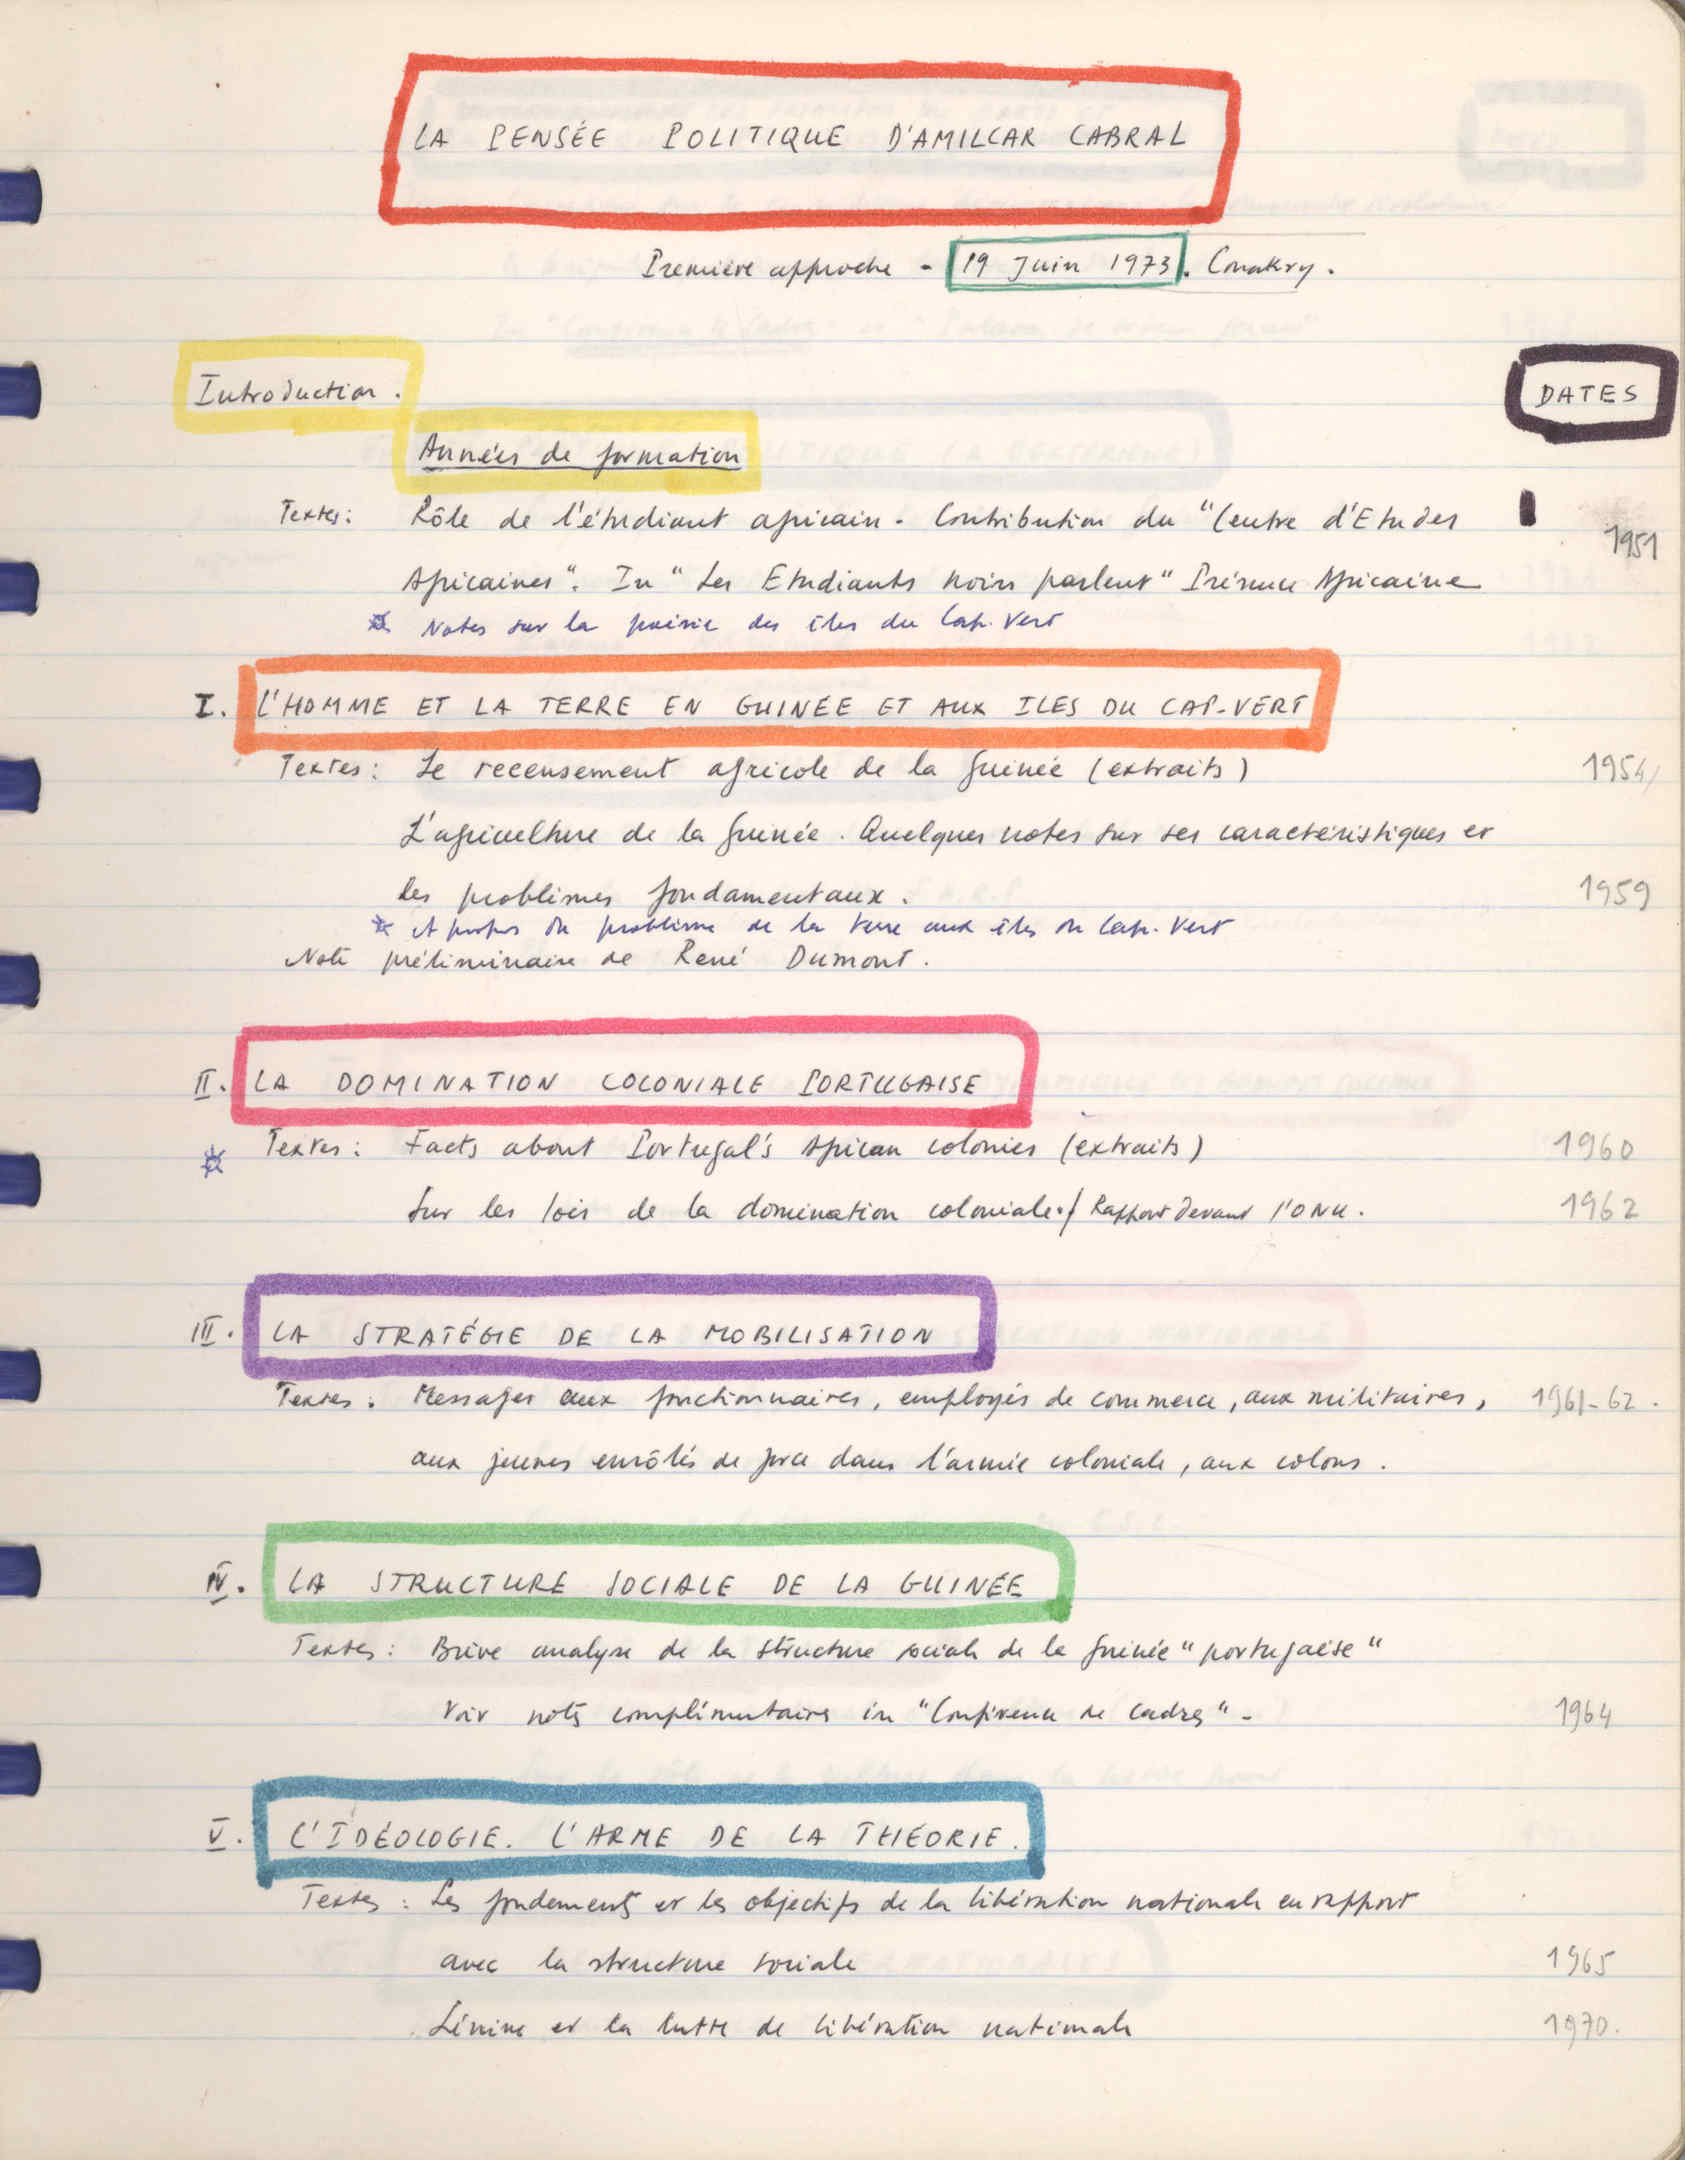 LA PENSÉE POLITIQUE D'AMILCAR CABRAL
Première approche - 19 Juin 1973. Conakry.
Introduction.
DATES
Années de formation
Textes: Rôle de l'étudiant africain. Contribution du "Centre d'Etudes
1951
Africaines". In "Les Etudiants noirs parlent" Présence Africaine
Notes sur la poésie des îles du Cap-Vert
I. L'HOMME ET LA TERRE EN GUINÉE ET AUX ILES DU CAP-VERT
Textes: Le recensement agricole de la Guinée (extraits) 1954/
L'agriculture de la Guinée. Quelques notes sur ses caractéristiques et
les problèmes fondamentaux. 1959
A propos du problème de la terre aux îles du Cap-Vert
Note préliminaire de René Dumont.
II. LA DOMINATION COLONIALE PORTUGAISE
Textes: Facts about Portugal's African colonies (extraits) 1960
Sur les lois de la domination coloniale. / Rapport devant l'ONU. 1962
III. LA STRATÉGIE DE LA MOBILISATION
Textes: Messages aux fonctionnaires, employés de commerce, aux militaires, 1961-62.
aux jeunes enrôlés de force dans l'armée coloniale, aux colons.
IV. LA STRUCTURE SOCIALE DE LA GUINÉE
Textes: Brève analyse de la structure sociale de la Guinée "portugaise"
Voir notes complémentaires in "Conférence de cadres" - 1964
V. L'IDÉOLOGIE. L'ARME DE LA THÉORIE.
Textes: Les fondements et les objectifs de la libération nationale en rapport
avec la structure sociale 1965
Lénine et la lutte de libération nationale 1970.